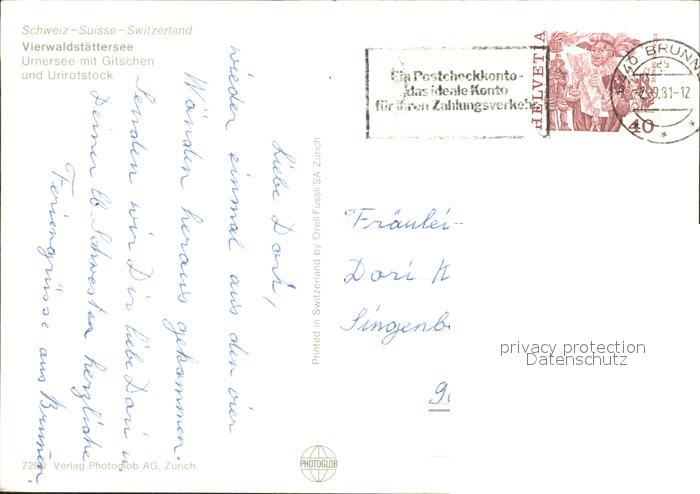 Schweiz – Suisse – Switzerland
Vierwaldstättersee
Urnersee mit Gitschen
und Urirotstock
Liebe Dori,
wieder einmal aus den vier
Wänden heraus gekommen.
Senden wir Dir liebe Dori u.
Deiner lb. Schwester herzliche
Feriengrüsse aus Brunnen.
Printed in Switzerland by Orell Füssli SA Zürich
Ein Postcheckkonto-
das ideale Konto
für Ihren Zahlungsverkehr
HELVETIA
40
6440 BRUNN
.9.81-12
Fräulei-
Dori K
Singenb
privacy protection
Datenschutz
Verlag Photoglob AG, Zürich
PHOTOGLOB